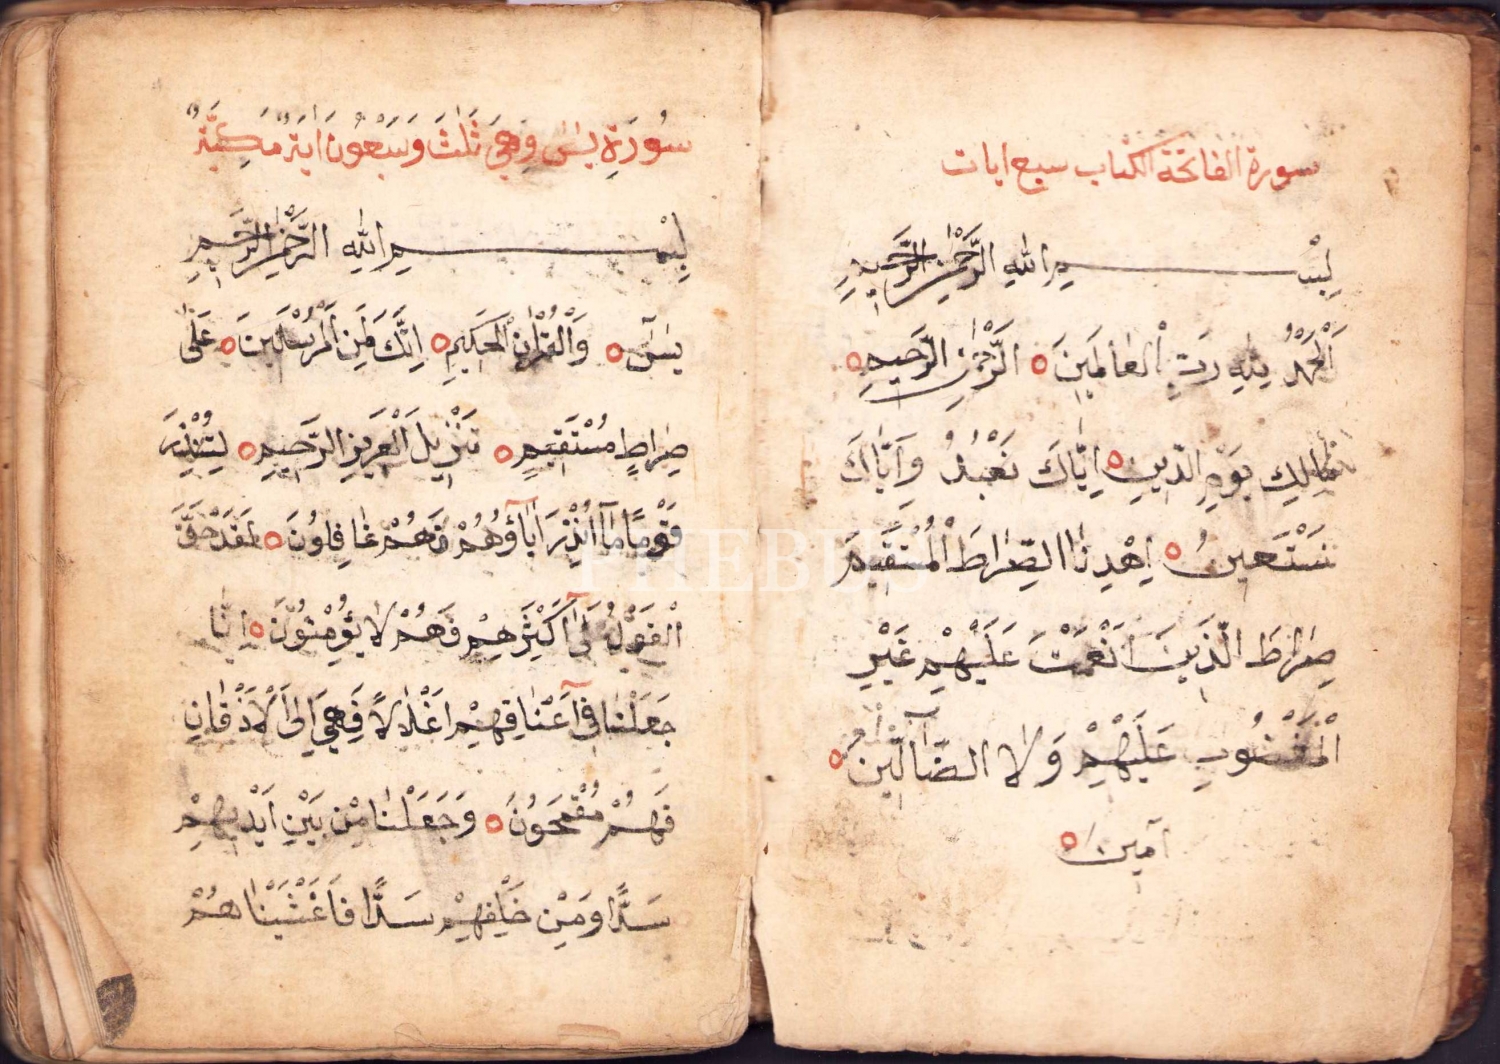 سورة الفاتحة الكتاب سبع ايات
بِسْــــــمِ اللهِ الرَّحْمٰنِ الرَّحِيمِ
اَلْحَمْدُ لِلهِ رَبِّ الْعَالَمِينَ ○ الرَّحْمٰنِ الرَّحِيمِ ○
مَالِكِ يَوْمِ الدِّينِ ○ اِيَّاكَ نَعْبُدُ وَاِيَّاكَ
نَسْتَعِينُ ○ اِهْدِنَا الصِّرَاطَ الْمُسْتَقِيمَ
صِرَاطَ الَّذِينَ اَنْعَمْتَ عَلَيْهِمْ غَيْرِ
الْمَغْضُوبِ عَلَيْهِمْ وَلَا الضَّآلِّينَ ○
آمين ○
سُورَةِ يٰسٓ وَهِيَ ثَلٰثَ وَسَبْعُونَ اٰيَةً مَكِّيَّةً
بِسْمِــــــ اللهِ الرَّحْمٰنِ الرَّحِيمِ
يٰسٓ ○ وَالْقُرْاٰنِ الْحَكِيمِ ○ اِنَّكَ لَمِنَ الْمُرْسَلِينَ ○ عَلٰى
صِرَاطٍ مُسْتَقِيمٍ ○ تَنْزِيلَ الْعَزِيزِ الرَّحِيمِ ○ لِتُنْذِرَ
قَوْمًا مَآ اُنْذِرَ اٰبَآؤُهُمْ فَهُمْ غَافِلُونَ ○ لَقَدْ حَقَّ
الْقَوْلُ عَلٰٓى اَكْثَرِهِمْ فَهُمْ لَا يُؤْمِنُونَ ○ اِنَّا
جَعَلْنَا فِىٓ اَعْنَاقِهِمْ اَغْلَالًا فَهِيَ اِلَى الْاَذْقَانِ
فَهُمْ مُقْمَحُونَ ○ وَجَعَلْنَا مِنْ بَيْنِ اَيْدِيهِمْ
سَدًّا وَمِنْ خَلْفِهِمْ سَدًّا فَاَغْشَيْنَاهُمْ
PHEBUS